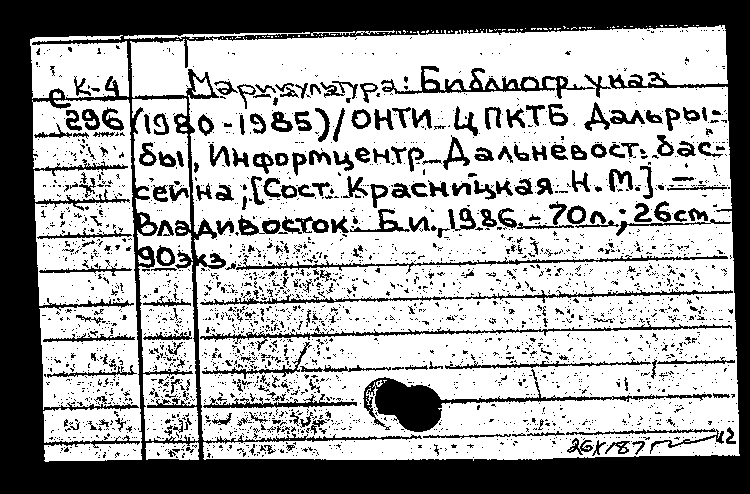 К-4 Марикультура: Библиогр. указ
е 296 (1980-1985)/ОНТИ ЦПКТБ Дальры-
бы, Информцентр Дальневост. бас-
сейна; [Сост. Красницкая Н.М.]. —
Владивосток: Б.и., 1986. - 70л.; 26см. -
90экз.
26/X 187г